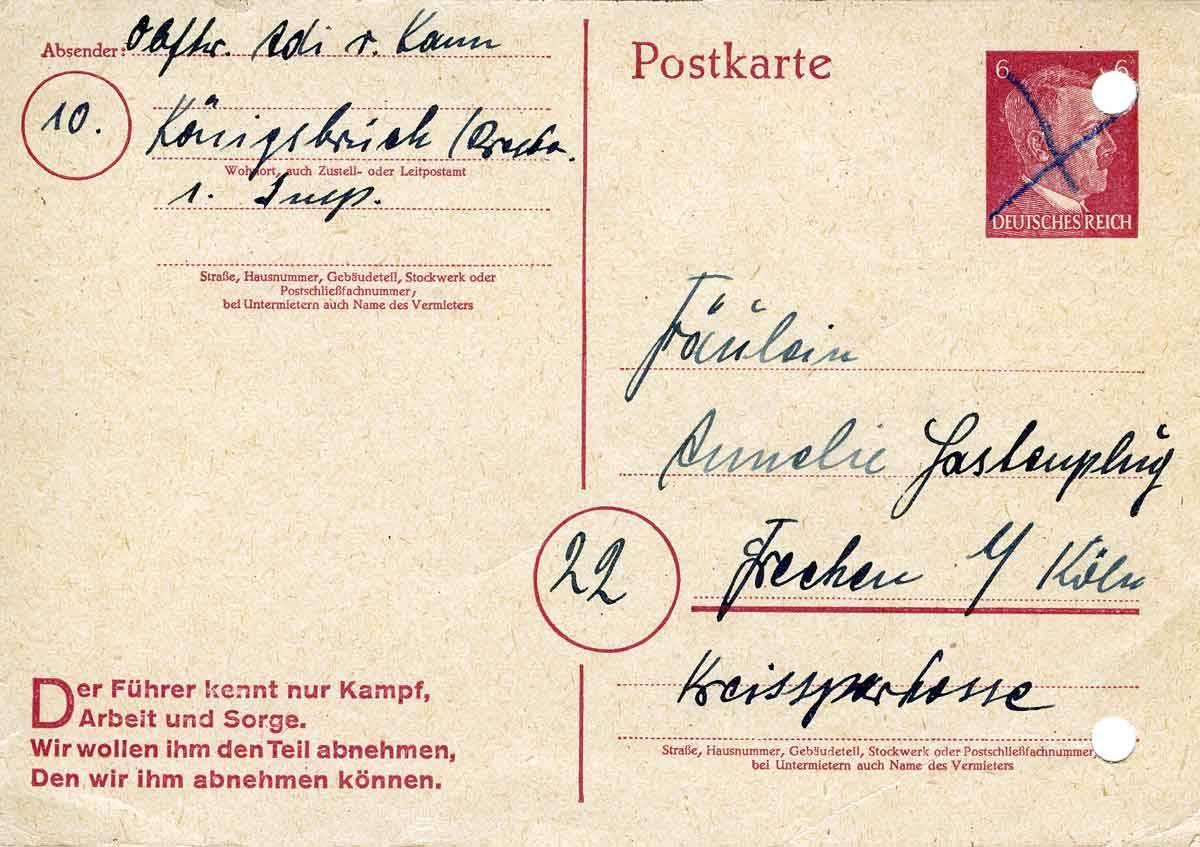 Absender: Obftr. Adi v. Kann
10.
Königsbrück / Dresden.
Wohnort, auch Zustell- oder Leitpostamt
1. Insp.
Straße, Hausnummer, Gebäudeteil, Stockwerk oder
Postschließfachnummer,
bei Untermietern auch Name des Vermieters
Der Führer kennt nur Kampf,
Arbeit und Sorge.
Wir wollen ihm den Teil abnehmen,
Den wir ihm abnehmen können.
Postkarte
6 6
DEUTSCHES REICH
Fräulein
Annelie Hastenpflug
22
Frechen b/ Köln
Kreissparkasse
Straße, Hausnummer, Gebäudeteil, Stockwerk oder Postschließfachnummer,
bei Untermietern auch Name des Vermieters